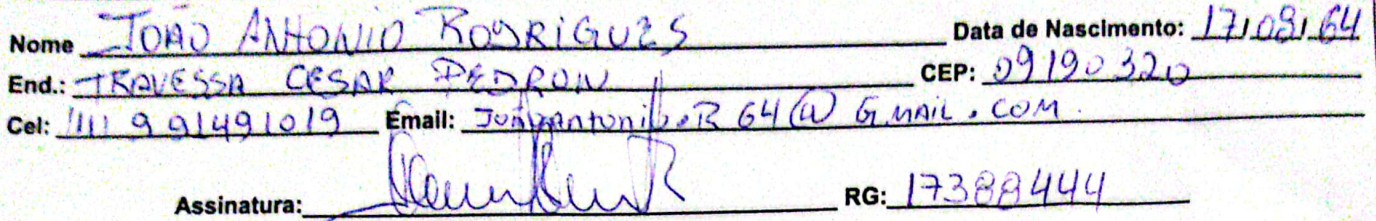 Nome JOÃO ANTONIO RODRIGUES Data de Nascimento: 17/08/64
End.: TRAVESSA CESAR PEDRON CEP: 09190320
Cel: (11) 991491019 Email: @ GMAIL.COM
Assinatura: RG: 17388444